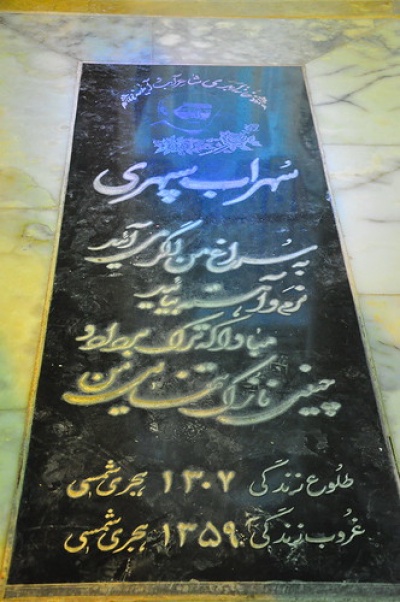 سهراب سپهری
به سراغ من اگر می آیید
نرم و آهسته بیایید
مبادا که ترک بردارد
چینی نازک تنهایی من
طلوع زندگی ۱۳۰۷ هجری شمسی
غروب زندگی ۱۳۵۹ هجری شمسی